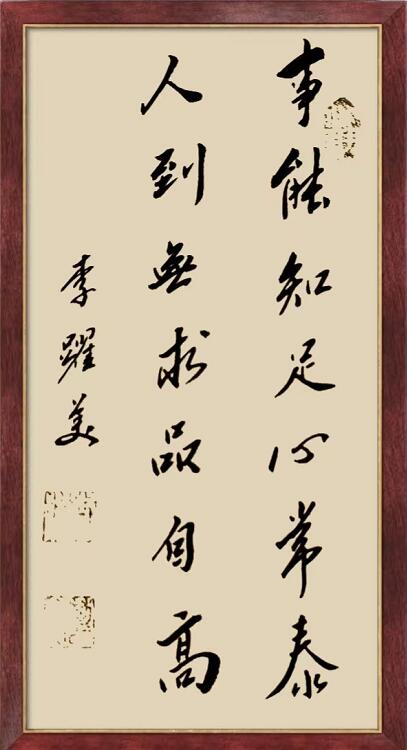 事能知足心常泰
人到無求品自高
李躍美